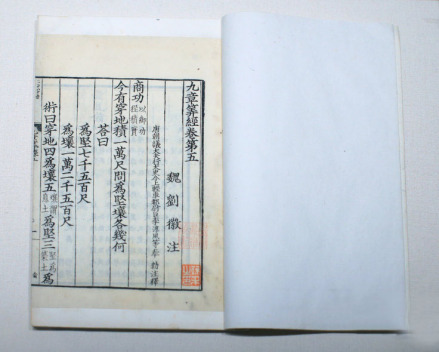 九章筭經卷第五
魏劉徽注
唐朝議大夫行太史令上輕車都尉臣李淳風等奉勑注釋
商功以御功程積實
今有穿地積一萬尺問爲堅壤各幾何
荅曰
爲堅七千五百尺
爲壤一萬二千五百尺
術曰穿地四爲壤五壤謂息土爲堅三堅謂築土爲